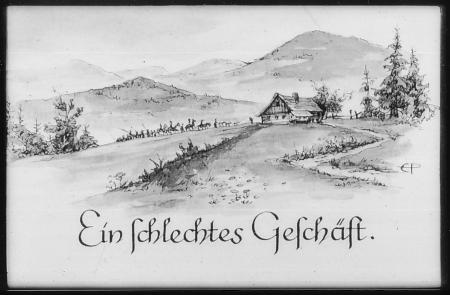 Ein ſchlechtes Geſchäft.
EP